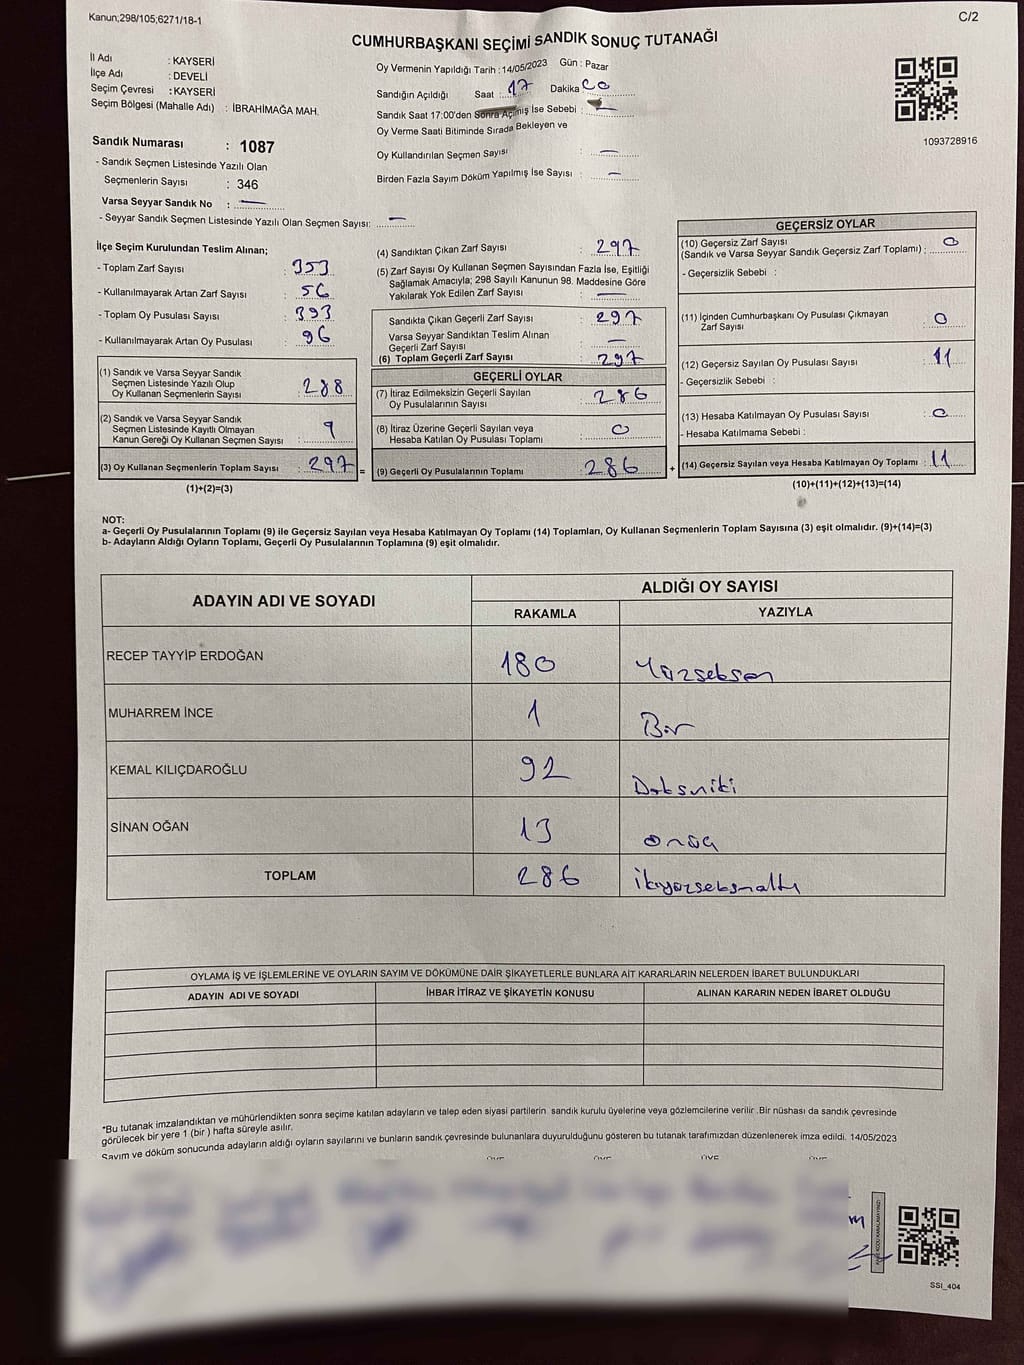 Kanun;298/105;6271/18-1
C/2
CUMHURBAŞKANI SEÇİMİ SANDIK SONUÇ TUTANAĞI
İl Adı : KAYSERİ
İlçe Adı : DEVELİ
Seçim Çevresi : KAYSERİ
Seçim Bölgesi (Mahalle Adı) : İBRAHİMAĞA MAH.
Sandık Numarası : 1087
- Sandık Seçmen Listesinde Yazılı Olan
Seçmenlerin Sayısı : 346
Varsa Seyyar Sandık No : —
- Seyyar Sandık Seçmen Listesinde Yazılı Olan Seçmen Sayısı: —
Oy Vermenin Yapıldığı Tarih : 14/05/2023 Gün : Pazar
Sandığın Açıldığı Saat : 17 Dakika 00
Sandık Saat 17:00'den Sonra Açılmış İse Sebebi : —
Oy Verme Saati Bitiminde Sırada Bekleyen ve
Oy Kullandırılan Seçmen Sayısı : —
Birden Fazla Sayım Döküm Yapılmış İse Sayısı : —
1093728916
İlçe Seçim Kurulundan Teslim Alınan;
- Toplam Zarf Sayısı : 353
- Kullanılmayarak Artan Zarf Sayısı : 56
- Toplam Oy Pusulası Sayısı : 393
- Kullanılmayarak Artan Oy Pusulası : 96
(1) Sandık ve Varsa Seyyar Sandık
Seçmen Listesinde Yazılı Olup
Oy Kullanan Seçmenlerin Sayısı : 288
(2) Sandık ve Varsa Seyyar Sandık
Seçmen Listesinde Kayıtlı Olmayan
Kanun Gereği Oy Kullanan Seçmen Sayısı : 9
(3) Oy Kullanan Seçmenlerin Toplam Sayısı : 297 =
(1)+(2)=(3)
(4) Sandıktan Çıkan Zarf Sayısı : 297
(5) Zarf Sayısı Oy Kullanan Seçmen Sayısından Fazla İse, Eşitliği
Sağlamak Amacıyla; 298 Sayılı Kanunun 98. Maddesine Göre
Yakılarak Yok Edilen Zarf Sayısı : —
Sandıkta Çıkan Geçerli Zarf Sayısı : 297
Varsa Seyyar Sandıktan Teslim Alınan
Geçerli Zarf Sayısı : —
(6) Toplam Geçerli Zarf Sayısı : 297
GEÇERLİ OYLAR
(7) İtiraz Edilmeksizin Geçerli Sayılan
Oy Pusulalarının Sayısı : 286
(8) İtiraz Üzerine Geçerli Sayılan veya
Hesaba Katılan Oy Pusulası Toplamı : 0
(9) Geçerli Oy Pusulalarının Toplamı : 286 +
GEÇERSİZ OYLAR
(10) Geçersiz Zarf Sayısı
(Sandık ve Varsa Seyyar Sandık Geçersiz Zarf Toplamı) : 0
- Geçersizlik Sebebi :
(11) İçinden Cumhurbaşkanı Oy Pusulası Çıkmayan
Zarf Sayısı : 0
(12) Geçersiz Sayılan Oy Pusulası Sayısı : 11
- Geçersizlik Sebebi :
(13) Hesaba Katılmayan Oy Pusulası Sayısı : 0
- Hesaba Katılmama Sebebi :
(14) Geçersiz Sayılan veya Hesaba Katılmayan Oy Toplamı : 11
(10)+(11)+(12)+(13)=(14)
NOT:
a- Geçerli Oy Pusulalarının Toplamı (9) ile Geçersiz Sayılan veya Hesaba Katılmayan Oy Toplamı (14) Toplamları, Oy Kullanan Seçmenlerin Toplam Sayısına (3) eşit olmalıdır. (9)+(14)=(3)
b- Adayların Aldığı Oyların Toplamı, Geçerli Oy Pusulalarının Toplamına (9) eşit olmalıdır.
ADAYIN ADI VE SOYADI
ALDIĞI OY SAYISI
RAKAMLA YAZIYLA
RECEP TAYYİP ERDOĞAN 180 Yüzseksen
MUHARREM İNCE 1 Bir
KEMAL KILIÇDAROĞLU 92 Doksaniki
SİNAN OĞAN 13 onüç
TOPLAM 286 ikiyüzseksenaltı
OYLAMA İŞ VE İŞLEMLERİNE VE OYLARIN SAYIM VE DÖKÜMÜNE DAİR ŞİKAYETLERLE BUNLARA AİT KARARLARIN NELERDEN İBARET BULUNDUKLARI
ADAYIN ADI VE SOYADI İHBAR İTİRAZ VE ŞİKAYETİN KONUSU ALINAN KARARIN NEDEN İBARET OLDUĞU
*Bu tutanak imzalandıktan ve mühürlendikten sonra seçime katılan adayların ve talep eden siyasi partilerin sandık kurulu üyelerine veya gözlemcilerine verilir .Bir nüshası da sandık çevresinde
görülecek bir yere 1 (bir ) hafta süreyle asılır.
Sayım ve döküm sonucunda adayların aldığı oyların sayılarını ve bunların sandık çevresinde bulunanlara duyurulduğunu gösteren bu tutanak tarafımızdan düzenlenerek imza edildi. 14/05/2023
ÜYE ÜYE ÜYE ÜYE
SSI_404